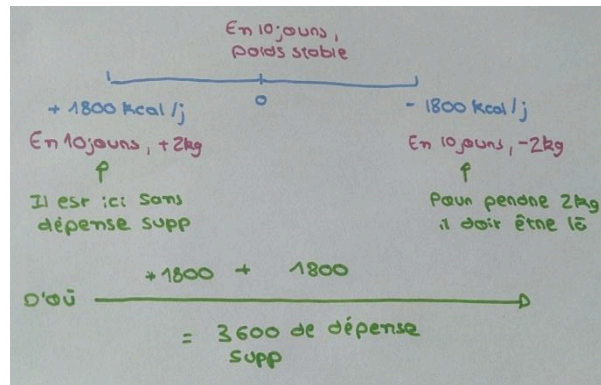 En 10 jours,
poids stable
+ 1800 kcal/j
0
- 1800 kcal/j
En 10 jours, +2kg
En 10 jours, -2kg
Il est ici sans
dépense supp
Pour perdre 2kg
il doit être là
+1800 + 1800
D'où
= 3600 de dépense
supp